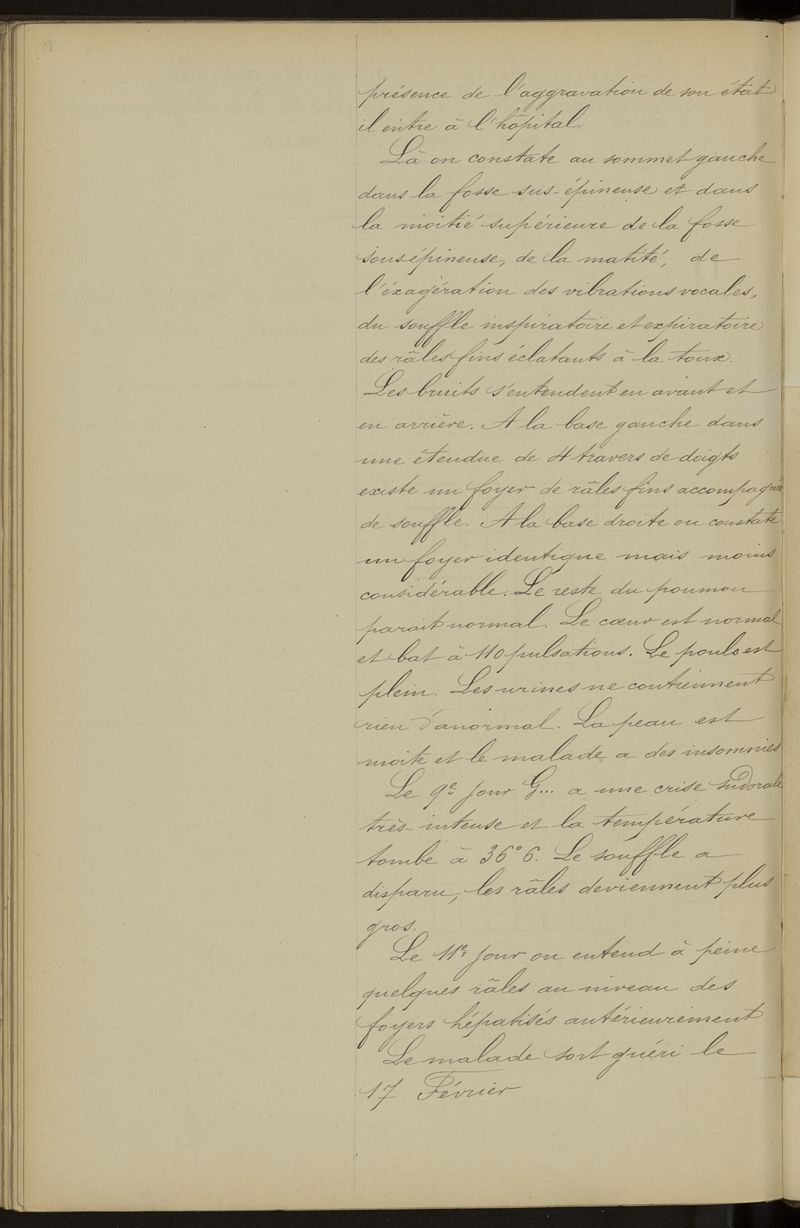 présence de l'aggravation de son état
il entre à l'hôpital.
Là on constate au sommet gauche
dans la fosse sus-épineuse et dans
la moitié supérieure de la fosse
sousépineuse, de la matité, de
l'éxagération des vibrations vocales,
du souffle inspiratoire et expiratoire
des râles fins éclatants à la toux.
Les bruits s'entendent en avant et
en arrière. A la base gauche dans
une étendue de 4 travers de doigts
existe un foyer de râles fins accompagnés
de souffle. A la base droite on constate
un foyer identique mais moins
considérable. Le reste du poumon
parait normal. Le cœur est normal
et bat à 110 pulsations. Le pouls est
plein. Les urines ne contiennent
rien d'anormal. La peau est
moite et le malade a des insomnies
Le 9e jour G... a une crise sudorale
très intense et la température
tombe à 36°6. Le souffle a
disparu, les râles deviennent plus
gros.
Le 11e jour on entend à peine
quelques râles au niveau des
foyers hépatisés antérieurement
Le malade sort guéri le
17 Février